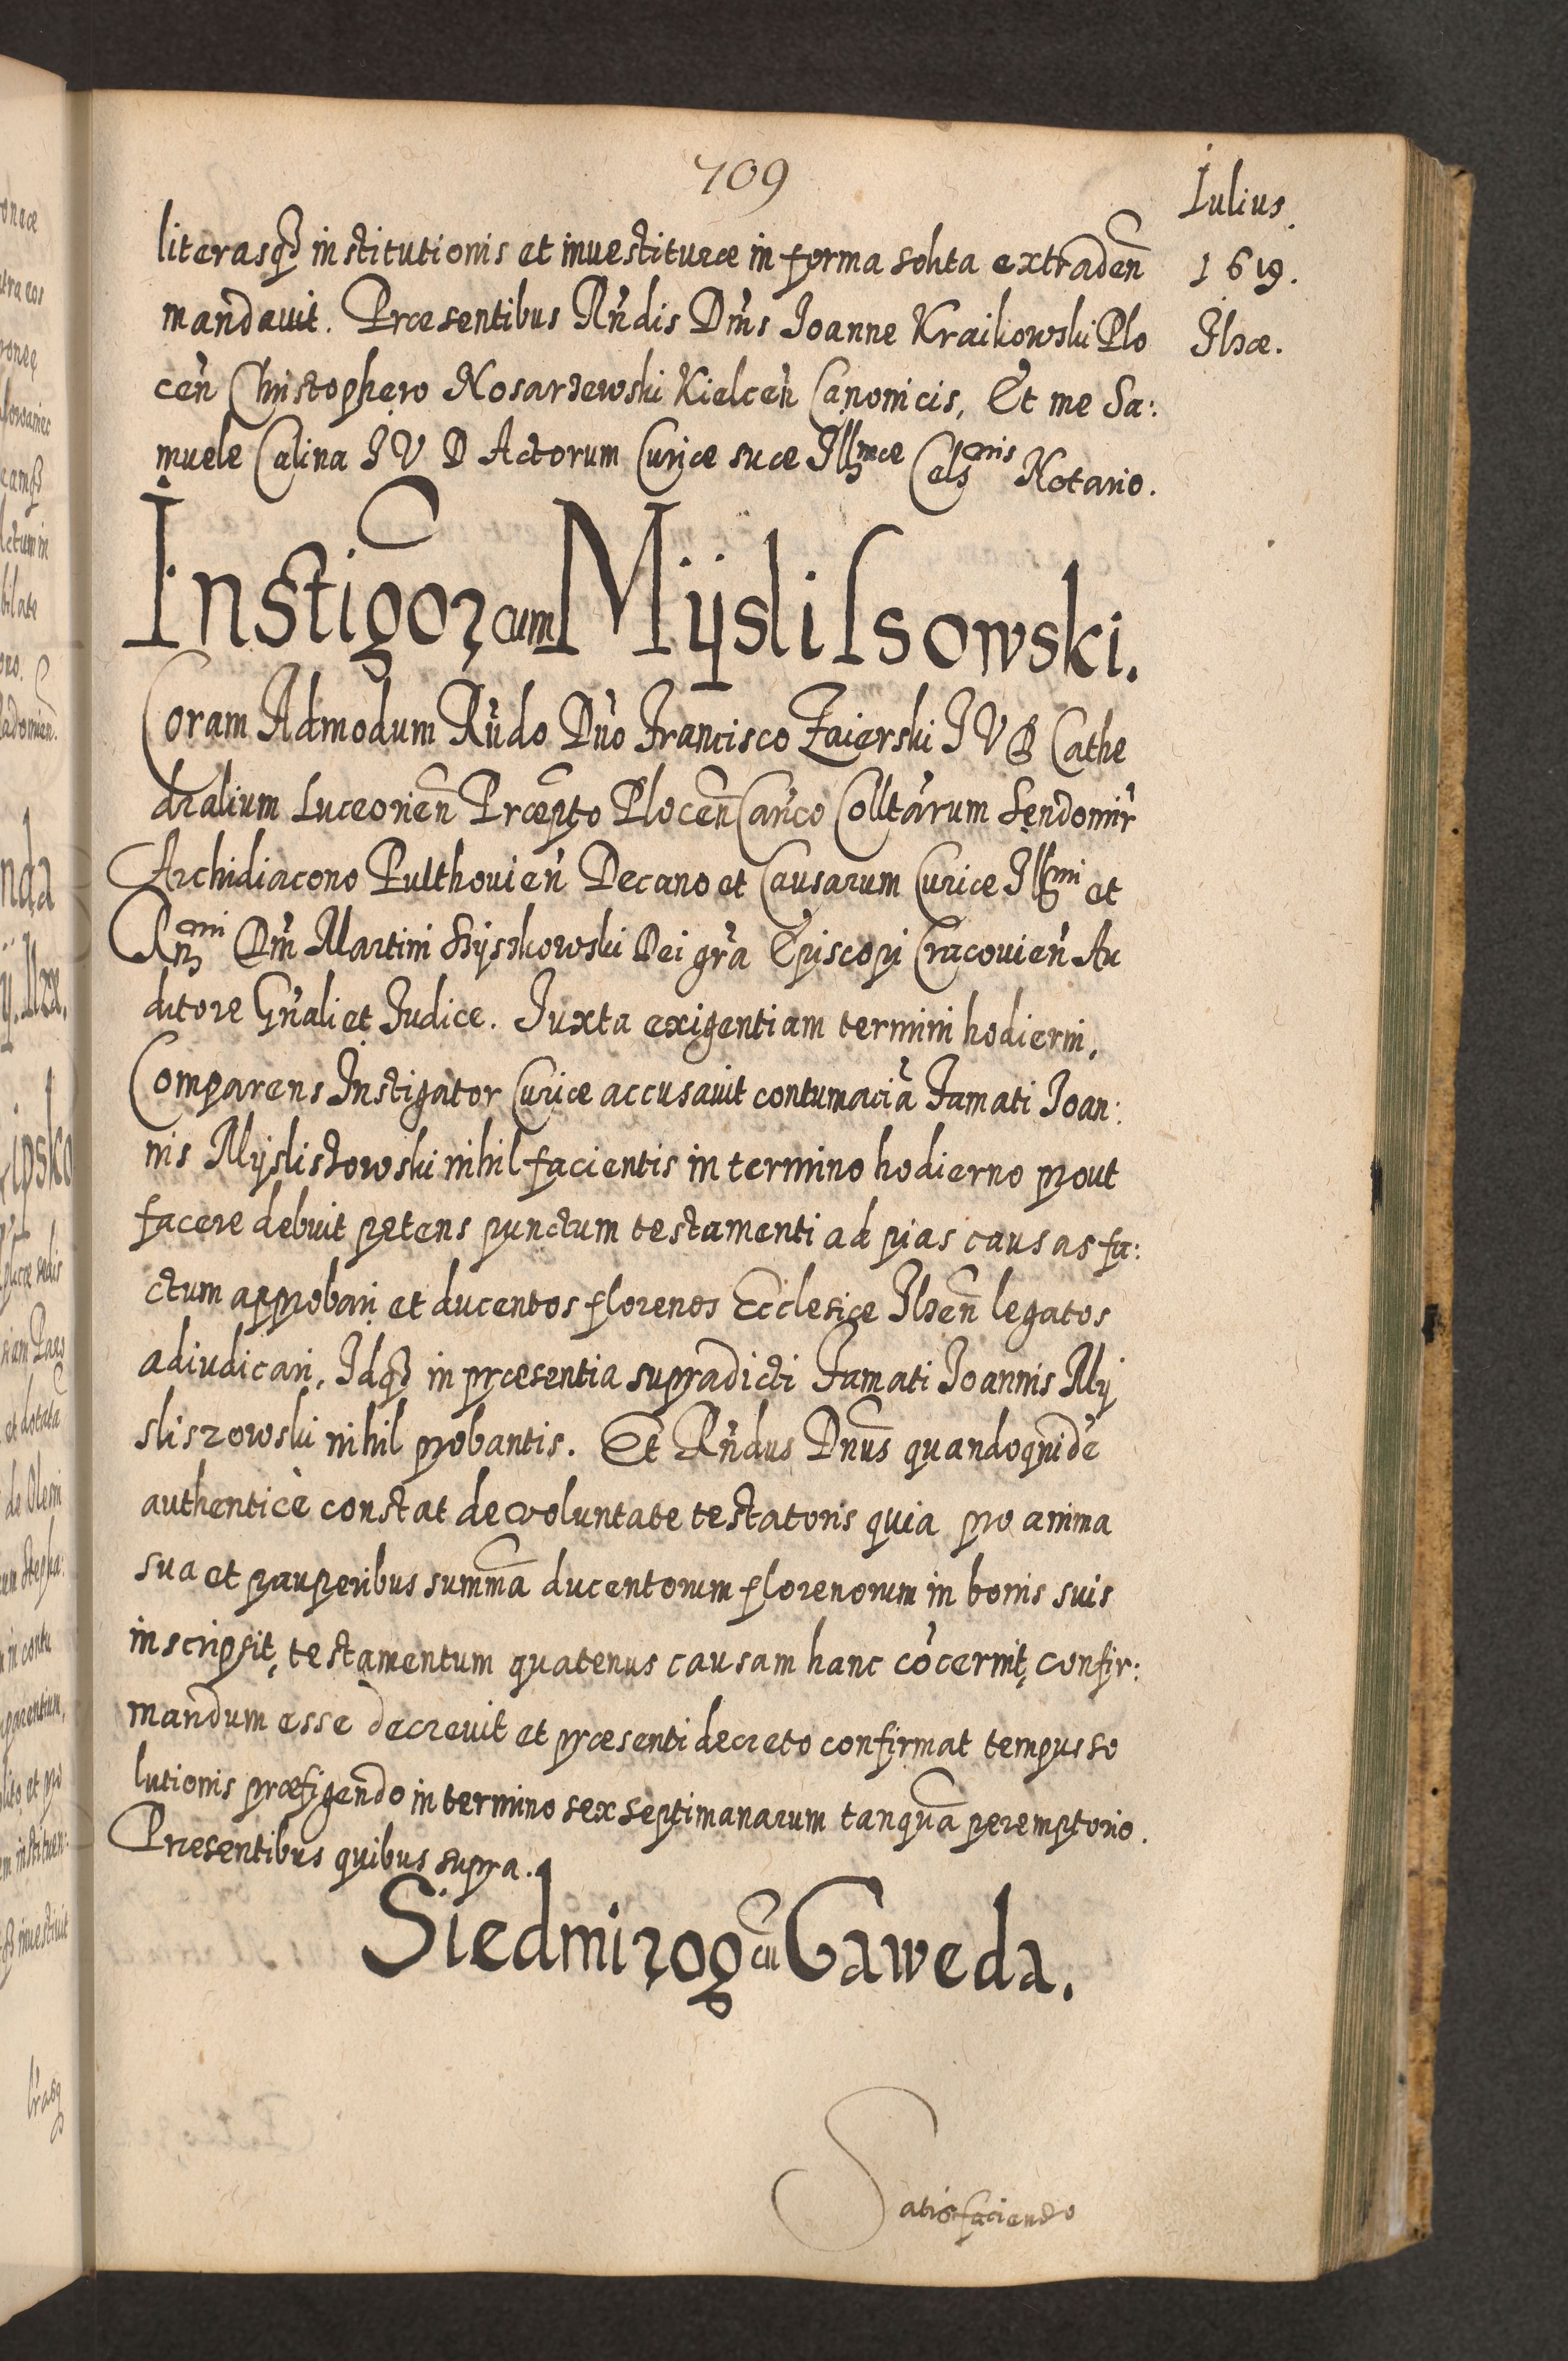 709
Iulius.
1619.
Ilzæ.
literasq3 institutionis et inuestituræ in forma solita extradeñ
mandauit. Præsentibus Rñdis Dm̃s Ioanne Kraikowski Plo
ceñ Christophero Nosarzewski Kielceñ Canonicis, Et me Sa:
muele Calina I V D Actorum Curiæ suæ Illmæ Celsnis Notario.
Instigor cum Mÿslisowski.
Coram Admodum Rñdo Dño Francisco Zaierski I V D Cathe
dralium Luceorieñ Præpto Ploceñ Cañco Colltarum Sendomir̃
Archidiacono Pulthouieñ Decano et Causarum Curiæ Illmi et
Rmi Dñi Martini Szÿszkowski Dei grã Episcopi Cracouieñ Au
ditore Gñali et Iudice. Iuxta exigentiam termini hodierni,
Comparens Instigator Curiæ accusauit contumaciã Famati Ioan:
nis Mÿsliszowski nihil facientis in termino hodierno prout
facere debuit petens punctum testamenti ad pias causas fa:
ctum approbari et ducentos florenos Ecclesiæ Ilzeñ legatos
adiudicari, Idq3 in præsentia supradicti Famati Ioannis Mÿ
sliszowski nihil probantis. Et Rñdus Dnus quandoquidẽ
authenticè constat de voluntate testatoris quia pro anima
sua et pauperibus summã ducentorum florenorum in bonis suis
inscripsit, testamentum quatenus causam hanc cõcernit, confir:
mandum esse decreuit et præsenti decreto confirmat tempus so
lutionis præfigendo in termino sex septimanarum tanquã peremptorio.
Præsentibus quibus supra.
Siedmirog cũ Gaweda.
Satisfaciendo